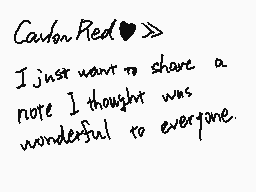 Carlon Red♥≫
I just want to share a
note I thought was
wonderful to everyone.